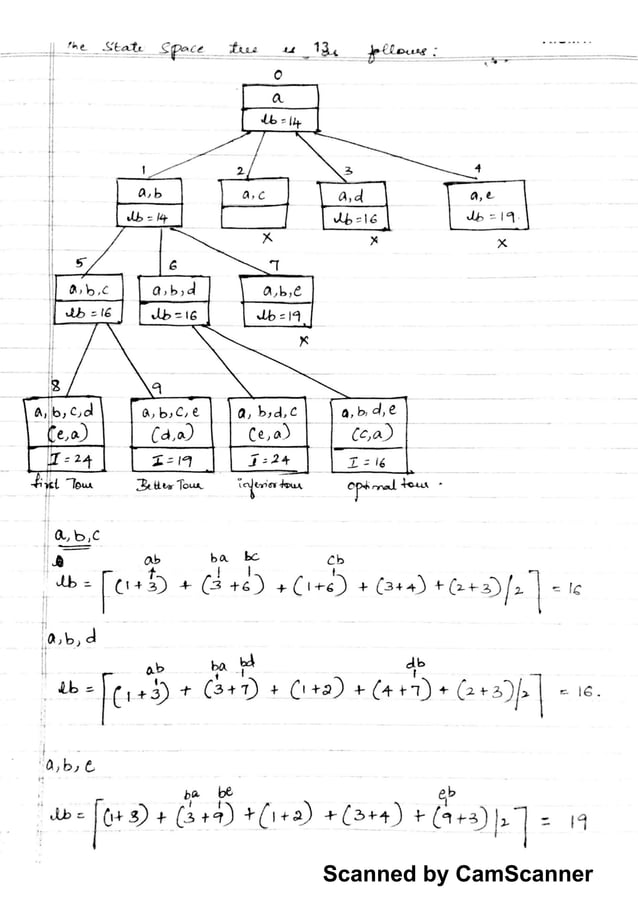 the State Space tree is 13 follows:
0
a
lb = 14
1 2 3 4
a,b a,c a,d a,e
lb = 14 lb = 16 lb = 19.
x x x
5 6 7
a,b,c a,b,d a,b,e
lb = 16 lb = 16 lb = 19
x
8 9
a,b,c,d a,b,c,e a,b,d,c a,b,d,e
(e,a) (d,a) (e,a) (c,a)
I = 24 I = 19 I = 24 I = 16
first Tour Better Tour inferior tour optimal tour.
a,b,c
ab ba bc cb
lb = ⌈(1+3) + (3+6) + (1+6) + (3+4) + (2+3)/2⌉ = 16
a,b,d
ab ba bd db
lb = ⌈(1+3) + (3+7) + (1+2) + (4+7) + (2+3)/2⌉ = 16.
a,b,e
ba be eb
lb = ⌈(1+3) + (3+9) + (1+2) + (3+4) + (9+3)/2⌉ = 19
Scanned by CamScanner